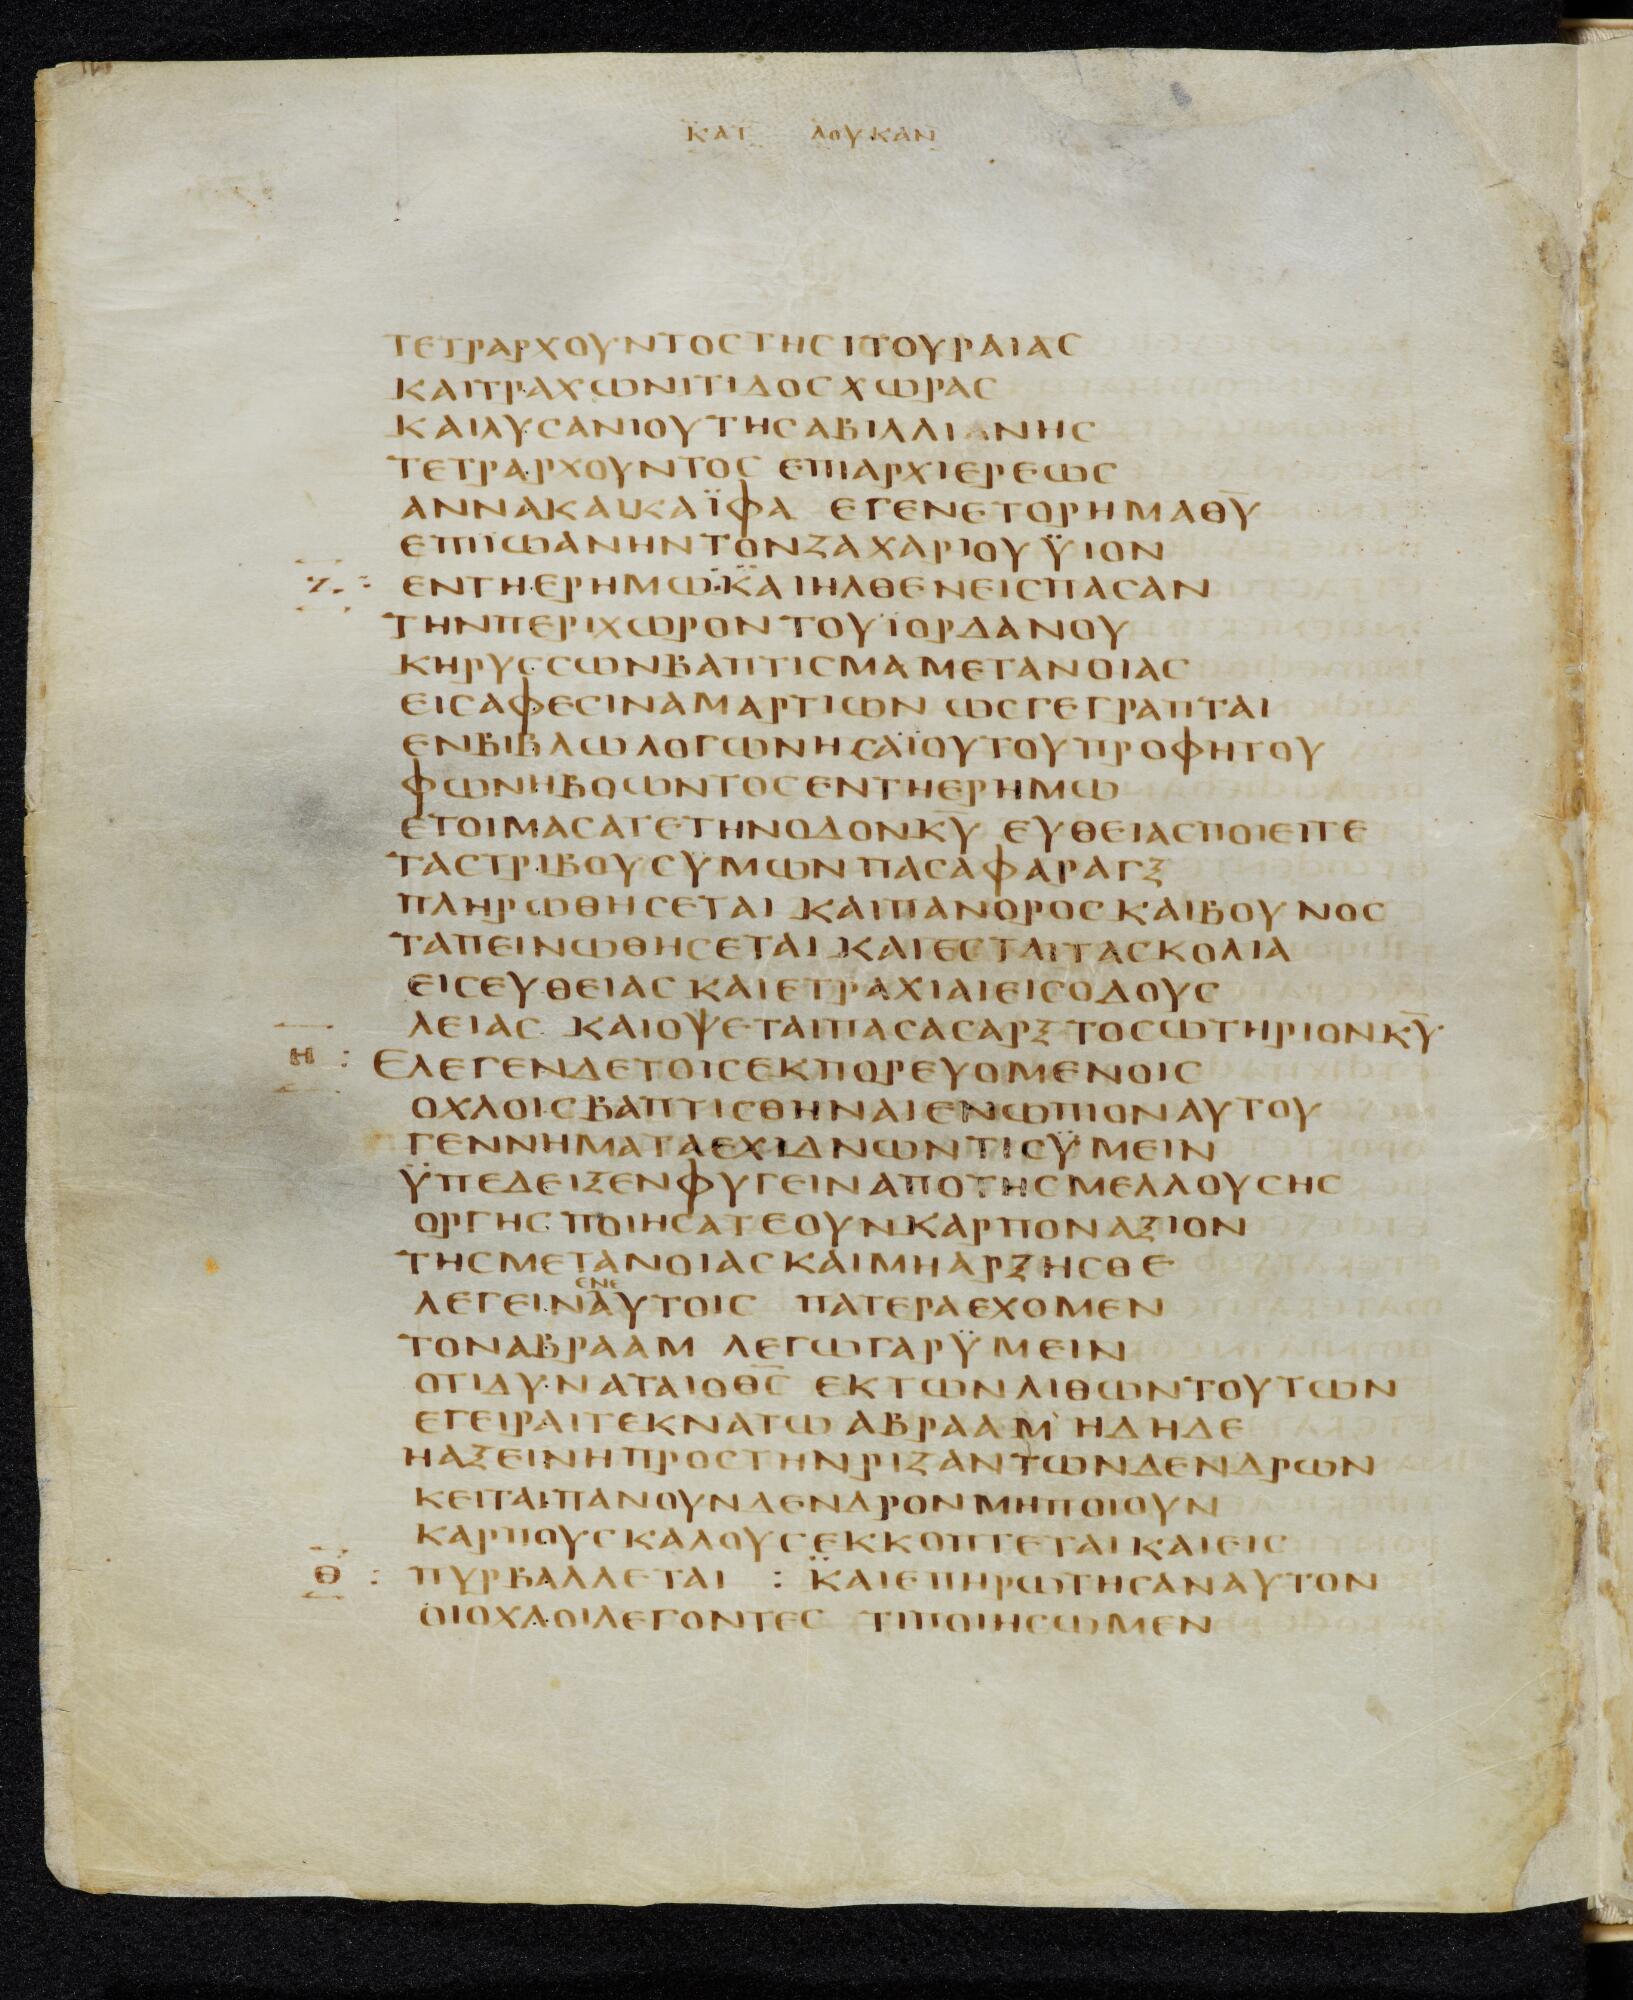 ΚΑΤ ΛΟΥΚΑΝ
ΤΕΤΡΑΡΧΟΥΝΤΟΣΤΗΣΙΤΟΥΡΑΙΑΣ
ΚΑΙΤΡΑΧΩΝΙΤΙΔΟΣΧΩΡΑΣ
ΚΑΙΛΥΣΑΝΙΟΥΤΗΣΑΒΙΛΛΙΑΝΗΣ
ΤΕΤΡΑΡΧΟΥΝΤΟΣ ΕΠΙΑΡΧΙΕΡΕΩΣ
ΑΝΝΑΚΑΙΚΑΪΦΑ ΕΓΕΝΕΤΟΡΗΜΑΘ̅Υ̅
ΕΠΙΪΩΑΝΗΝΤΟΝΖΑΧΑΡΙΟΥΫΙΟΝ
Ζ : ΕΝΤΗΕΡΗΜΩ:ΚΑΙΗΛΘΕΝΕΙΣΠΑΣΑΝ
ΤΗΝΠΕΡΙΧΩΡΟΝΤΟΥΪΟΡΔΑΝΟΥ
ΚΗΡΥΣΣΩΝΒΑΠΤΙΣΜΑΜΕΤΑΝΟΙΑΣ
ΕΙΣΑΦΕΣΙΝΑΜΑΡΤΙΩΝ ΩΣΓΕΓΡΑΠΤΑΙ
ΕΝΒΙΒΛΩΛΟΓΩΝΗΣΑΪΟΥΤΟΥΠΡΟΦΗΤΟΥ
ΦΩΝΗΒΟΩΝΤΟΣΕΝΤΗΕΡΗΜΩ
ΕΤΟΙΜΑΣΑΤΕΤΗΝΟΔΟΝΚ̅Υ̅ ΕΥΘΕΙΑΣΠΟΙΕΙΤΕ
ΤΑΣΤΡΙΒΟΥΣΫΜΩΝΠΑΣΑΦΑΡΑΓΞ
ΠΛΗΡΩΘΗΣΕΤΑΙ ΚΑΙΠΑΝΟΡΟΣΚΑΙΒΟΥΝΟΣ
ΤΑΠΕΙΝΩΘΗΣΕΤΑΙ ΚΑΙΕΣΤΑΙΤΑΣΚΟΛΙΑ
ΕΙΣΕΥΘΕΙΑΣΚΑΙΕΤΡΑΧΙΑΙΕΙΣΟΔΟΥΣ
ΛΕΙΑΣ ΚΑΙΟΨΕΤΑΙΠΑΣΑΣΑΡΞΤΟΣΩΤΗΡΙΟΝΚ̅Υ̅
Η : ΕΛΕΓΕΝΔΕΤΟΙΣΕΚΠΟΡΕΥΟΜΕΝΟΙΣ
ΟΧΛΟΙΣΒΑΠΤΙΣΘΗΝΑΙΕΝΩΠΙΟΝΑΥΤΟΥ
ΓΕΝΝΗΜΑΤΑΕΧΙΔΝΩΝΤΙΣΫΜΕΙΝ
ΫΠΕΔΕΙΞΕΝΦΥΓΕΙΝΑΠΟΤΗΣΜΕΛΛΟΥΣΗΣ
ΟΡΓΗΣ ΠΟΙΗΣΑΤΕΟΥΝΚΑΡΠΟΝΑΞΙΟΝ
ΤΗΣΜΕΤΑΝΟΙΑΣΚΑΙΜΗΑΡΞΗΣΘΕ
ΕΝΕ
ΛΕΓΕΙΝΑΥΤΟΙΣ ΠΑΤΕΡΑΕΧΟΜΕΝ
ΤΟΝΑΒΡΑΑΜ ΛΕΓΩΓΑΡΫΜΕΙΝ
ΟΤΙΔΥΝΑΤΑΙΟΘ̅Σ̅ ΕΚΤΩΝΛΙΘΩΝΤΟΥΤΩΝ
ΕΓΕΙΡΑΙΤΕΚΝΑΤΩΑΒΡΑΑΜ ΗΔΗΔΕ
ΗΑΞΕΙΝΗΠΡΟΣΤΗΝΡΙΖΑΝΤΩΝΔΕΝΔΡΩΝ
ΚΕΙΤΑΙΠΑΝΟΥΝΔΕΝΔΡΟΝΜΗΠΟΙΟΥΝ
ΚΑΡΠΟΥΣΚΑΛΟΥΣΕΚΚΟΠΤΕΤΑΙΚΑΙΕΙΣ
Θ : ΠΥΡΒΑΛΛΕΤΑΙ : ΚΑΙΕΠΗΡΩΤΗΣΑΝΑΥΤΟΝ
ΟΙΟΧΛΟΙΛΕΓΟΝΤΕΣ ΤΙΠΟΙΗΣΩΜΕΝ